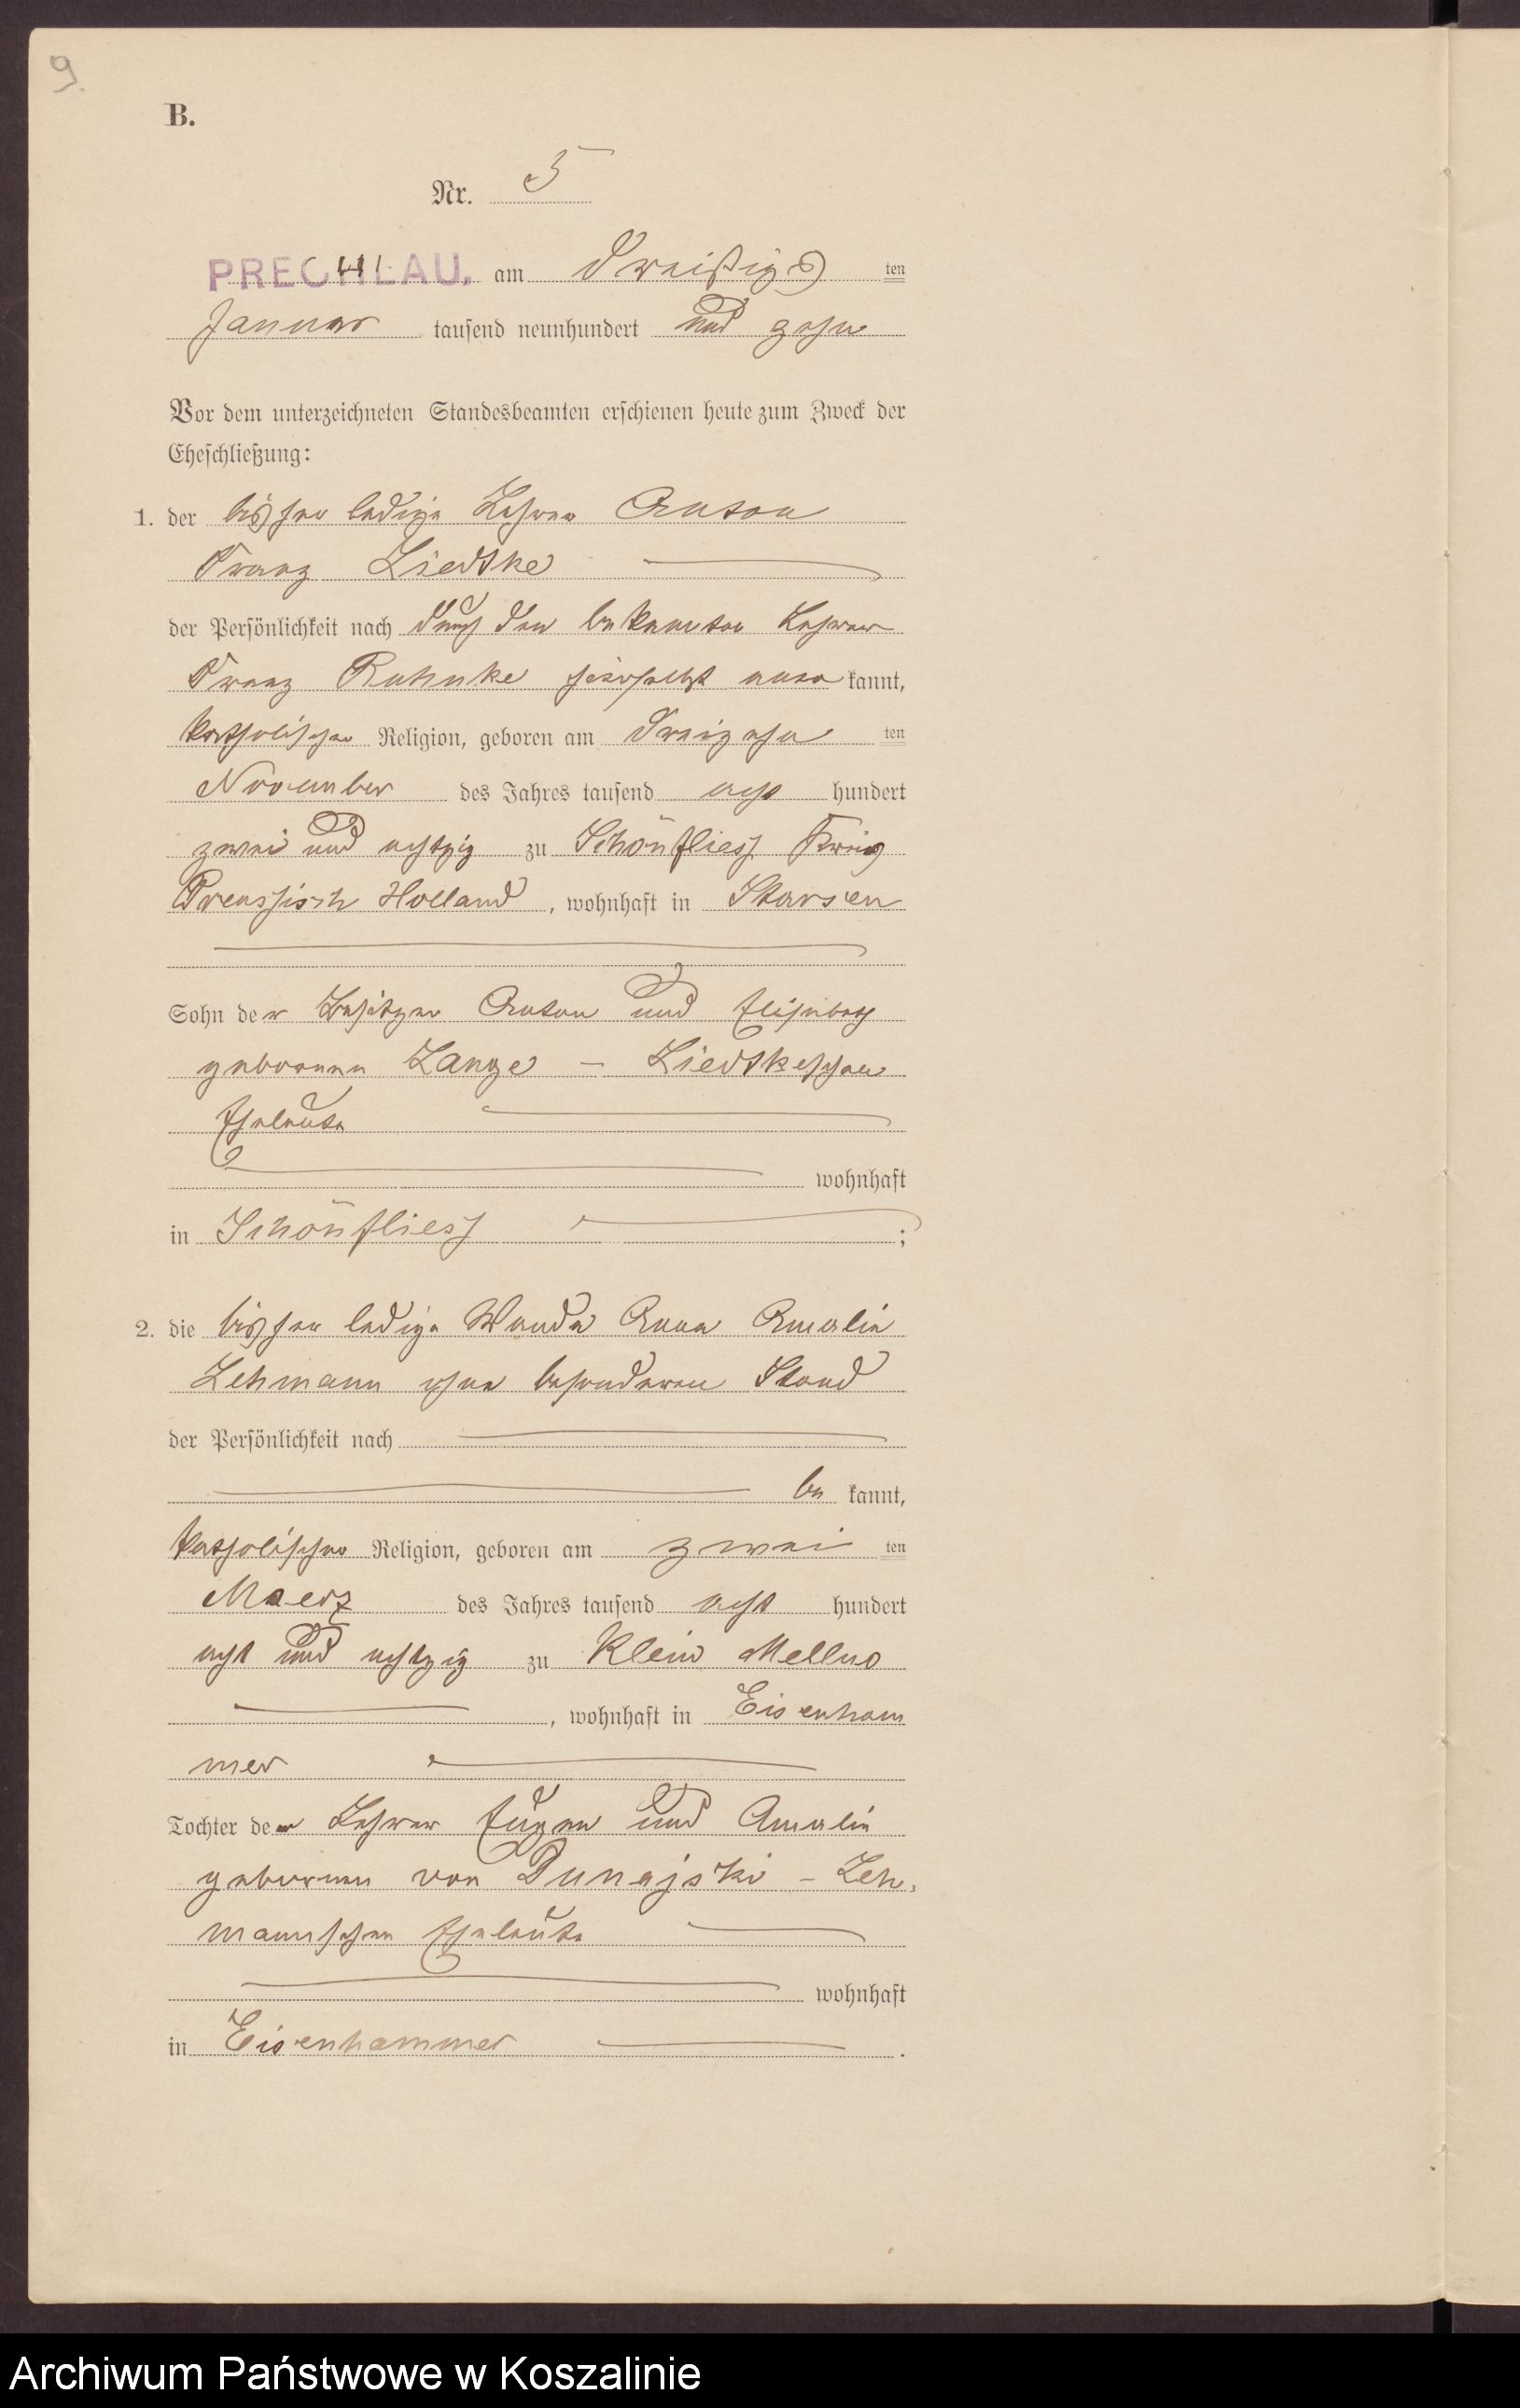 9.
B.
Nr. 5
PRECHLAU, am dreißigs ten
Januar tausend neunhundert und zehn
Vor dem unterzeichneten Standesbeamten erschienen heute zum Zweck der
Eheschließung:
1. der bisher ledige Lehrer Anton
Franz Liedtke
der Persönlichkeit nach durch den bekannten Lehrer
Franz Ruhnke hierselbst aner kannt,
katholischer Religion, geboren am dreizehn ten
November des Jahres tausend acht hundert
zwei und achtzig zu Schönfliess Kreis
Preussisch Holland, wohnhaft in Starsen
Sohn der Besitzer Anton und Elisabeth
geborenen Lange – Liedtkeschen
Eheleute
wohnhaft
in Schönfliess ;
2. die bisher ledige Wanda Anna Amalie
Lehmann ohne besonderen Stand
der Persönlichkeit nach
be kannt,
katholischer Religion, geboren am zwei ten
Maerz des Jahres tausend acht hundert
acht und achtzig zu Klein Melluo
, wohnhaft in Eisenham
mer
Tochter der Lehrer Eugen und Amalie
geborenen von Dunajski – Leh,
mannschen Eheleute
wohnhaft
in Eisenhammer .
Archiwum Państwowe w Koszalinie